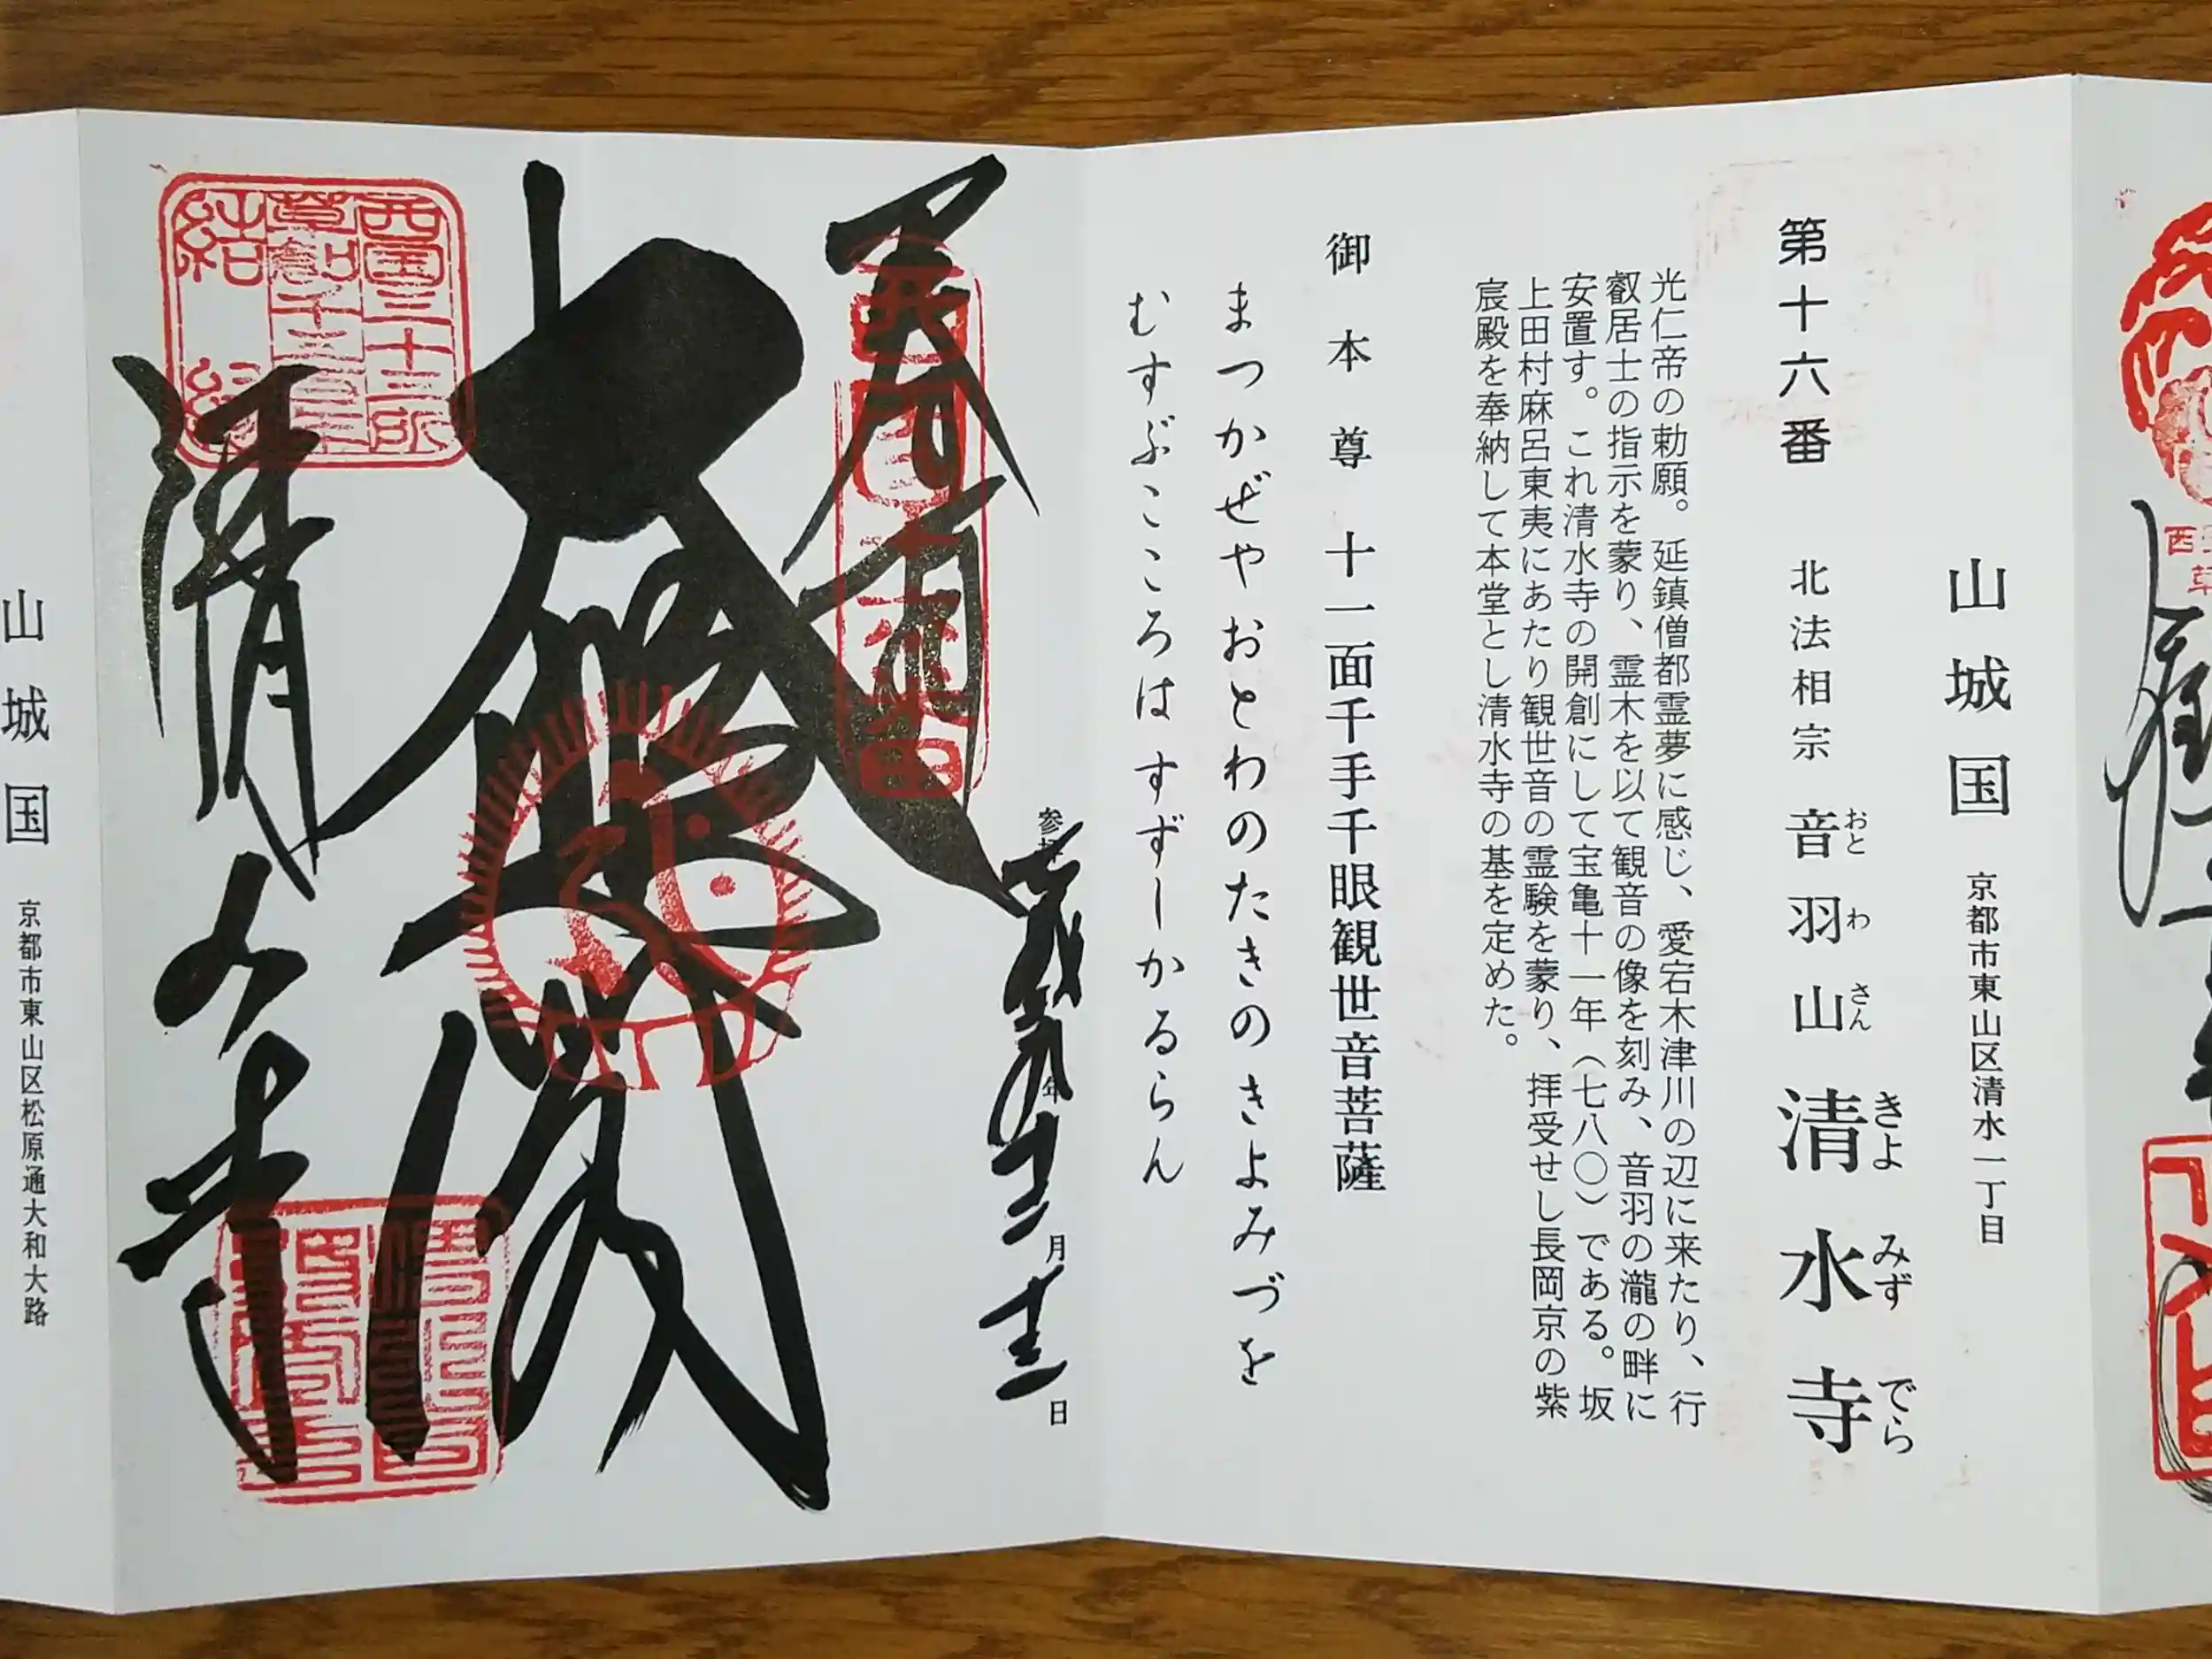 山城国
京都市東山区清水一丁目
第十六番 北法相宗 音羽山 清水寺
おとわさん きよみずでら
光仁帝の勅願。延鎮僧都霊夢に感じ、愛宕木津川の辺に来たり、行
叡居士の指示を蒙り、霊木を以て観音の像を刻み、音羽の瀧の畔に
安置す。これ清水寺の開創にして宝亀十一年(七八〇)である。坂
上田村麻呂東夷にあたり観世音の霊験を蒙り、拝受せし長岡京の紫
宸殿を奉納して本堂とし清水寺の基を定めた。
御本尊 十一面千手千眼観世音菩薩
まつかぜやおとわのたきのきよみづを
むすぶこころはすずしかるらん
奉拝
西国十六番
参拝 年十二月十三日
大悲閣
清水寺
西国三十三所
草創千三百年
結縁
山城国
京都市東山区松原通大和大路